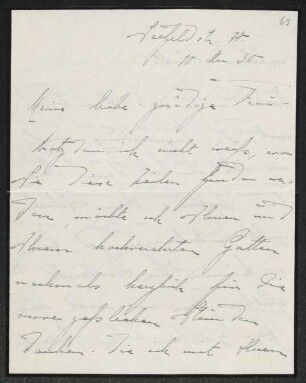 63
Seefeldstr. 70
Meine liebe gnädige Frau
trotzdem ich nicht weiss, wo
Sie diese Zeilen finden wer-
den, möchte ich Ihnen und
Ihrem hochverehrten Gatten
nochmals herzlich für die
unvergesslichen Stunden
danken. Die ich mit Ihnen